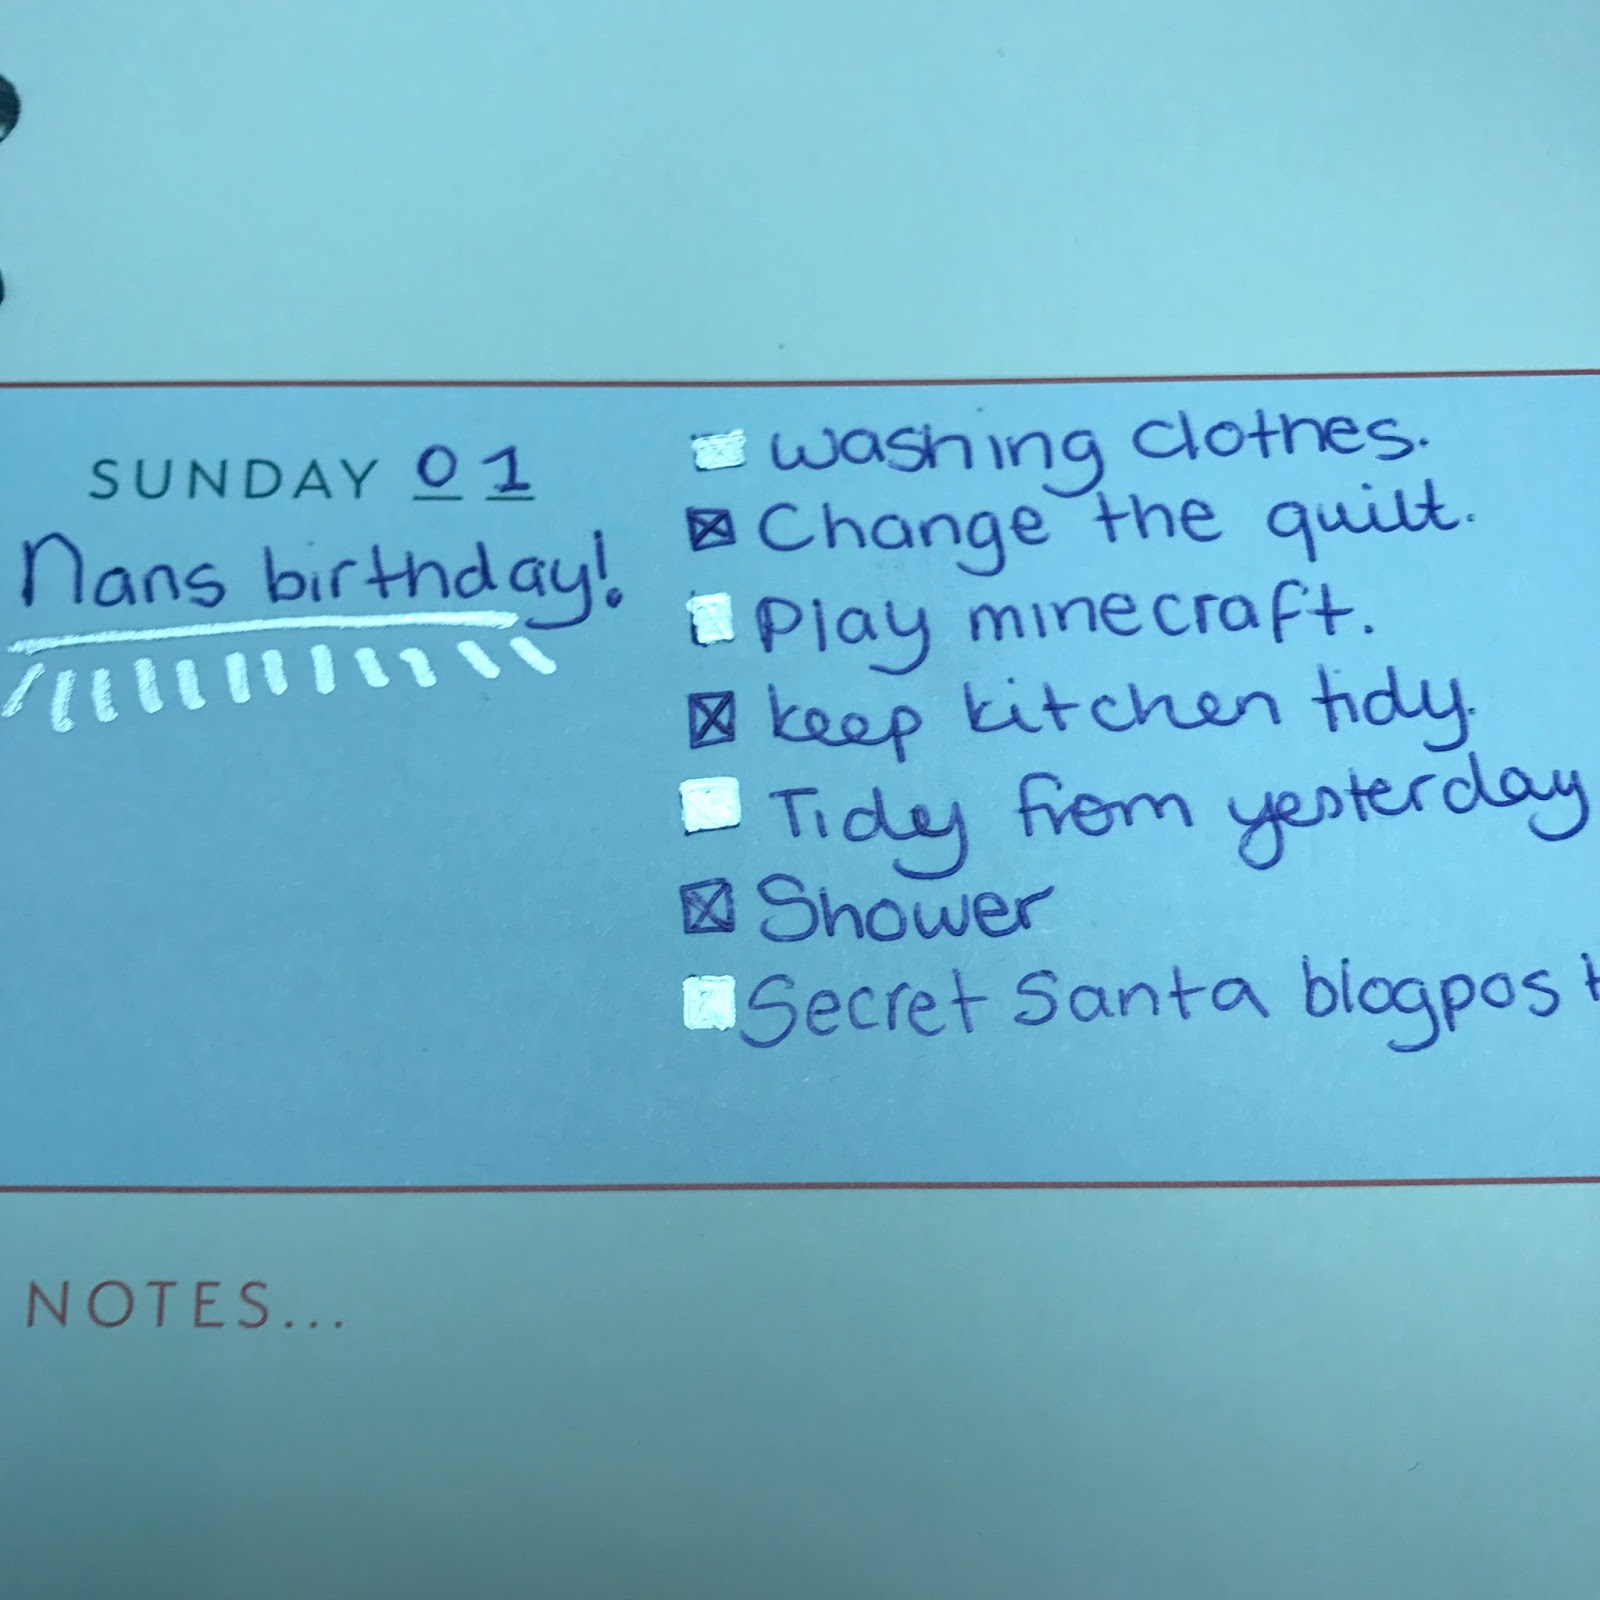 SUNDAY 01
Nans birthday!
washing clothes.
Change the quilt.
Play minecraft.
keep kitchen tidy.
Tidy from yesterday
Shower
Secret Santa blogpost
NOTES...